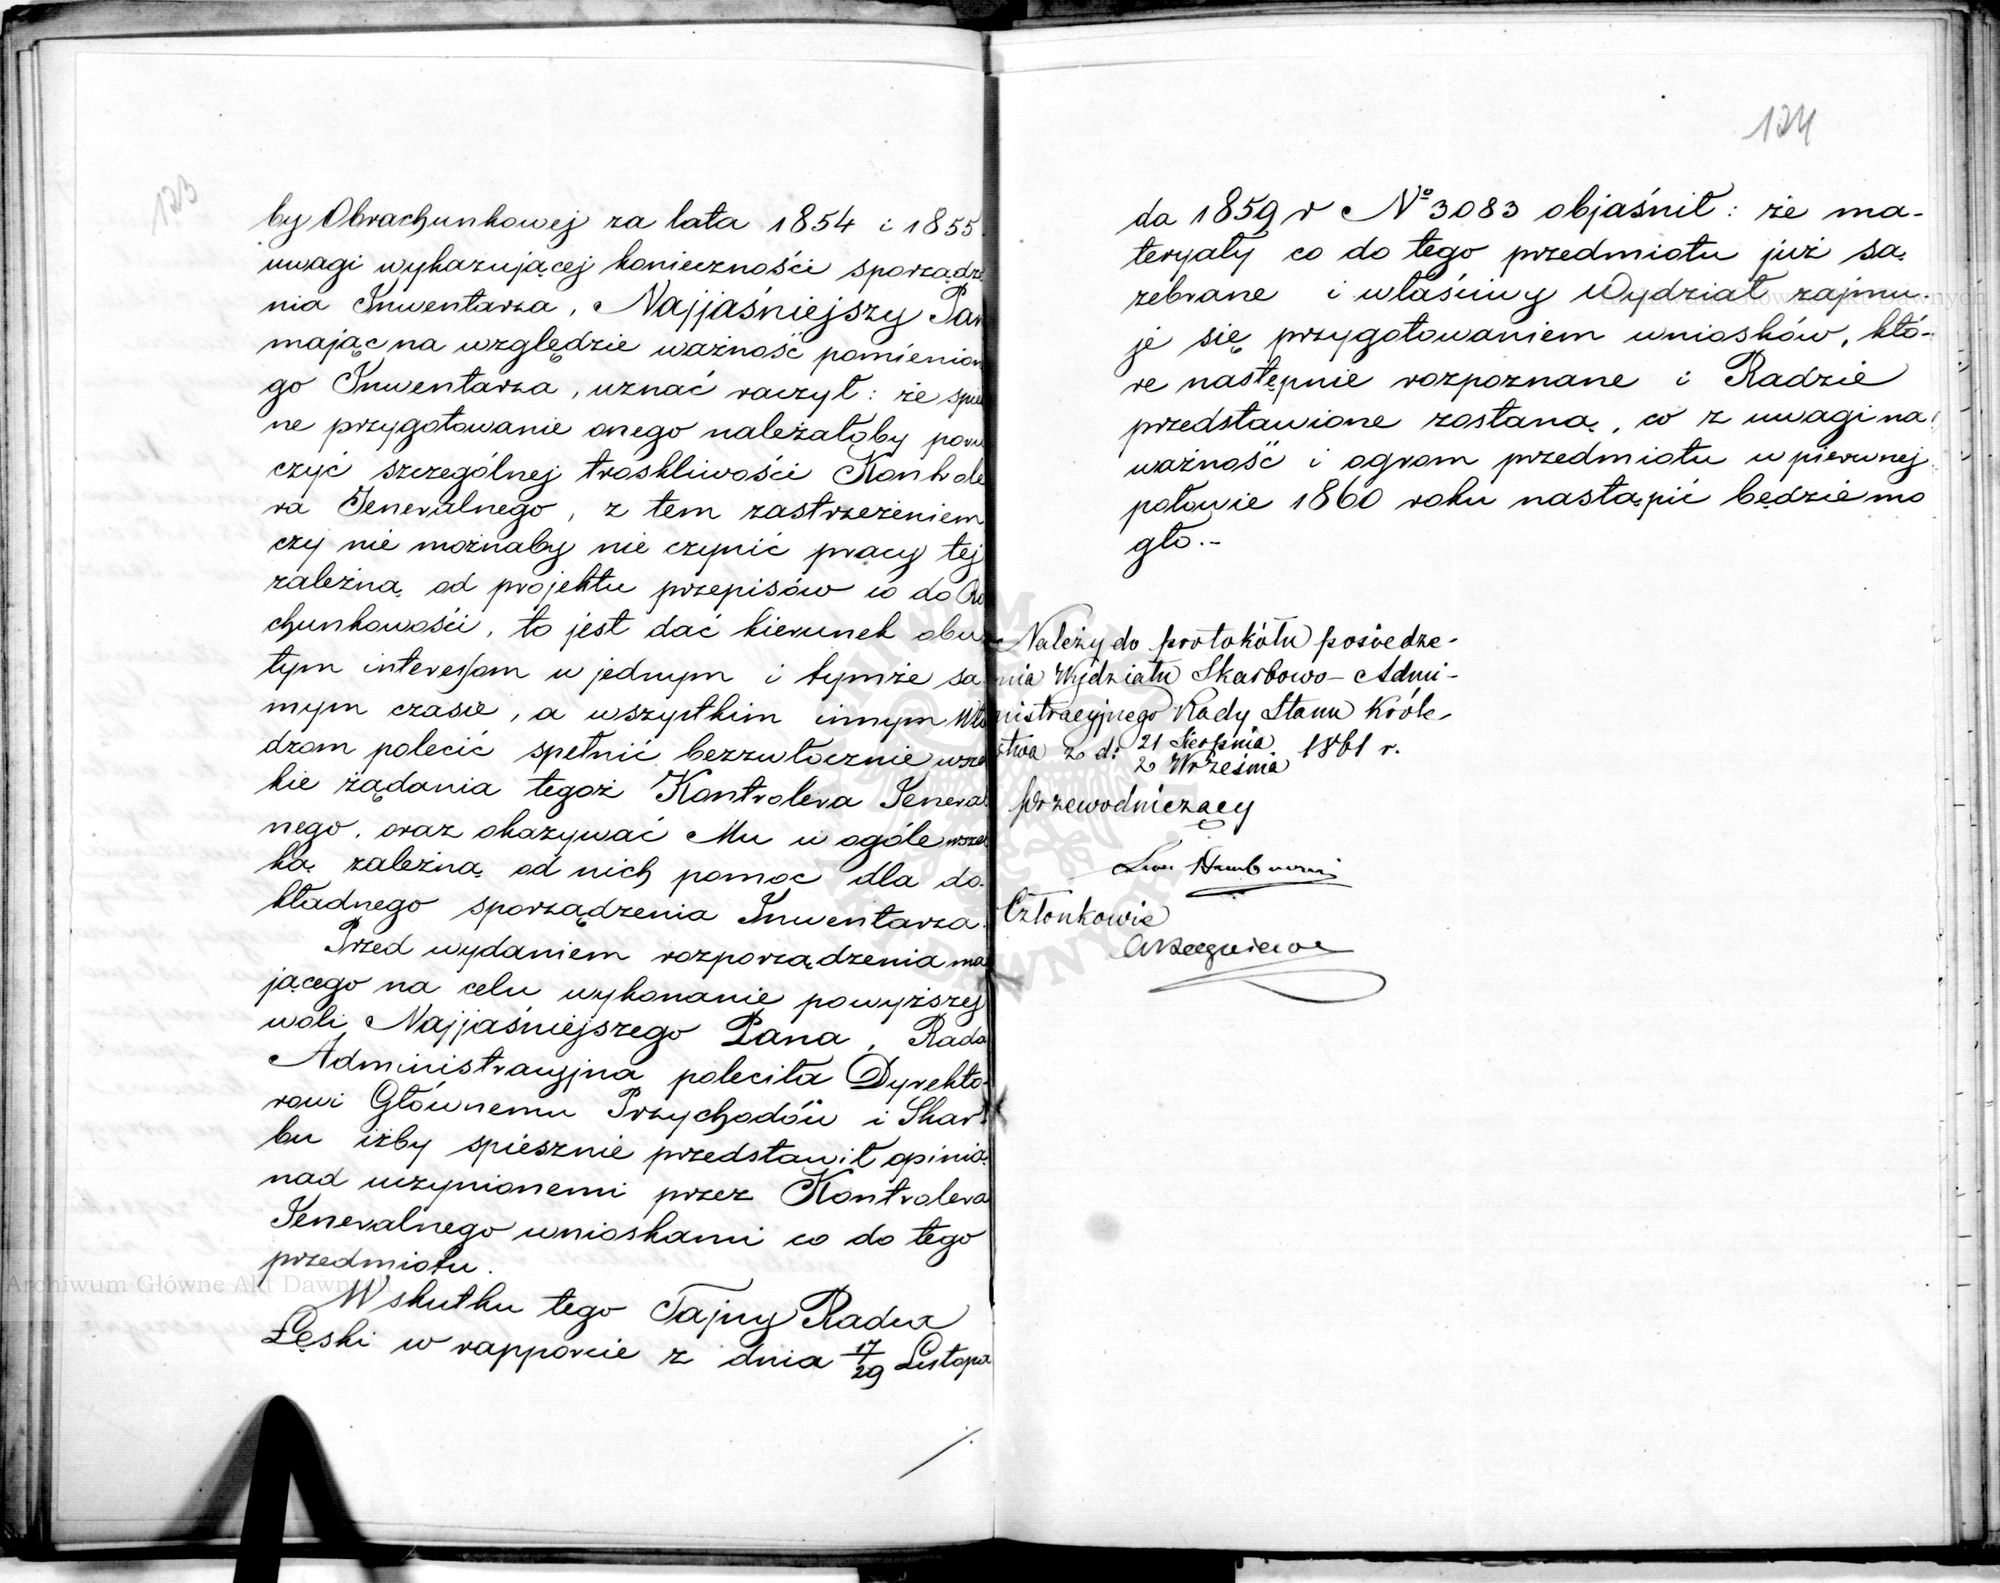 123
by Obrachunkowej za lata 1854 i 1855.
uwagi wykazującej konieczności sporządze
nia Inwentarza, Najjaśniejszy Pan
mając na względzie ważność pomienione
go Inwentarza, uznać raczył: że spie
ne przygotowanie onego należałoby poru
czyć szczególnej troskliwości Kontrole
ra Jeneralnego, z tem zastrzeżeniem
czy nie możnaby nie czynić pracy tej
zależną od projektu przepisów co do Ra
chunkowości, to jest dać kierunek obu
tym interessom w jednym i tymże sa
mym czasie, a wszystkim innym Wła
dzom polecić spełnić bezzwłocznie wsze
kie żądania tegoż Kontrolera Jeneral
nego, oraz okazywać Mu w ogóle wszel
ką zależną od nich pomoc dla do
kładnego sporządzenia Inwentarza.
Przed wydaniem rozporządzenia ma
jącego na celu wykonanie powyższej
woli Najjaśniejszego Pana, Rada
Administracyjna poleciła Dyrekto
rowi Głównemu Przychodów i Skar
bu iżby spiesznie przedstawił opinią
nad uczynionemi przez Kontrolera
Jeneralnego wnioskami co do tego
przedmiotu.
W skutku tego Tajny Radca
Łęski w rapporcie z dnia 17/29 Listopa
./.
124
da 1859 r No 3083 objaśnił: że ma-
teryały co do tego przedmiotu już są
zebrane i właściwy Wydział zajmu-
je się przygotowaniem wniosków, któ-
re następnie rozpoznane i Radzie
przedstawione zostaną, co z uwagi na
ważność i ogrom przedmiotu w pierwszej
połowie 1860 roku nastąpić będzie mo
gło.-
Należy do protokółu posiedze-
nia Wydziału Skarbowo-Admi-
nistracyjnego Rady Stanu Króle-
stwa z d: 21 Sierpnia / 2 Września 1861 r.
Przewodniczący
Członkowie
Archiwum Główne Akt Dawnych